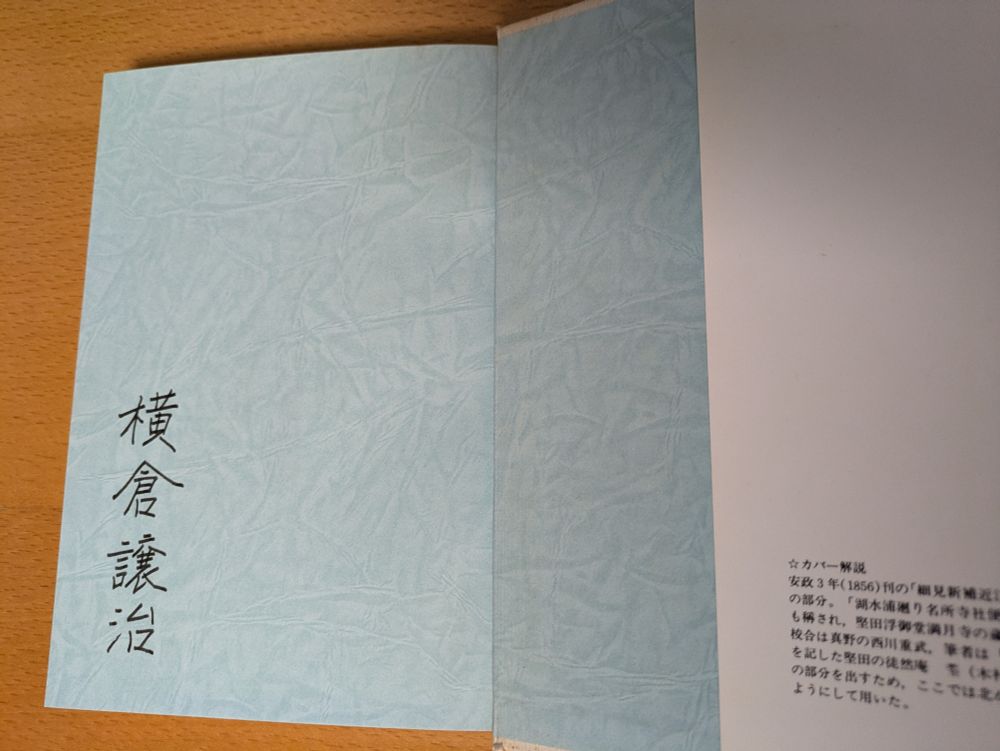 横倉譲治
☆カバー解説
安政3年(1856)刊の「細見新補近江
の部分。「湖水浦廻り名所寺社
も稱され，堅田浮御堂満月寺の蔵
校合は真野の西川重武，筆者は
を記した堅田の徒然庵
の部分を出すため，ここでは北が
ようにして用いた。